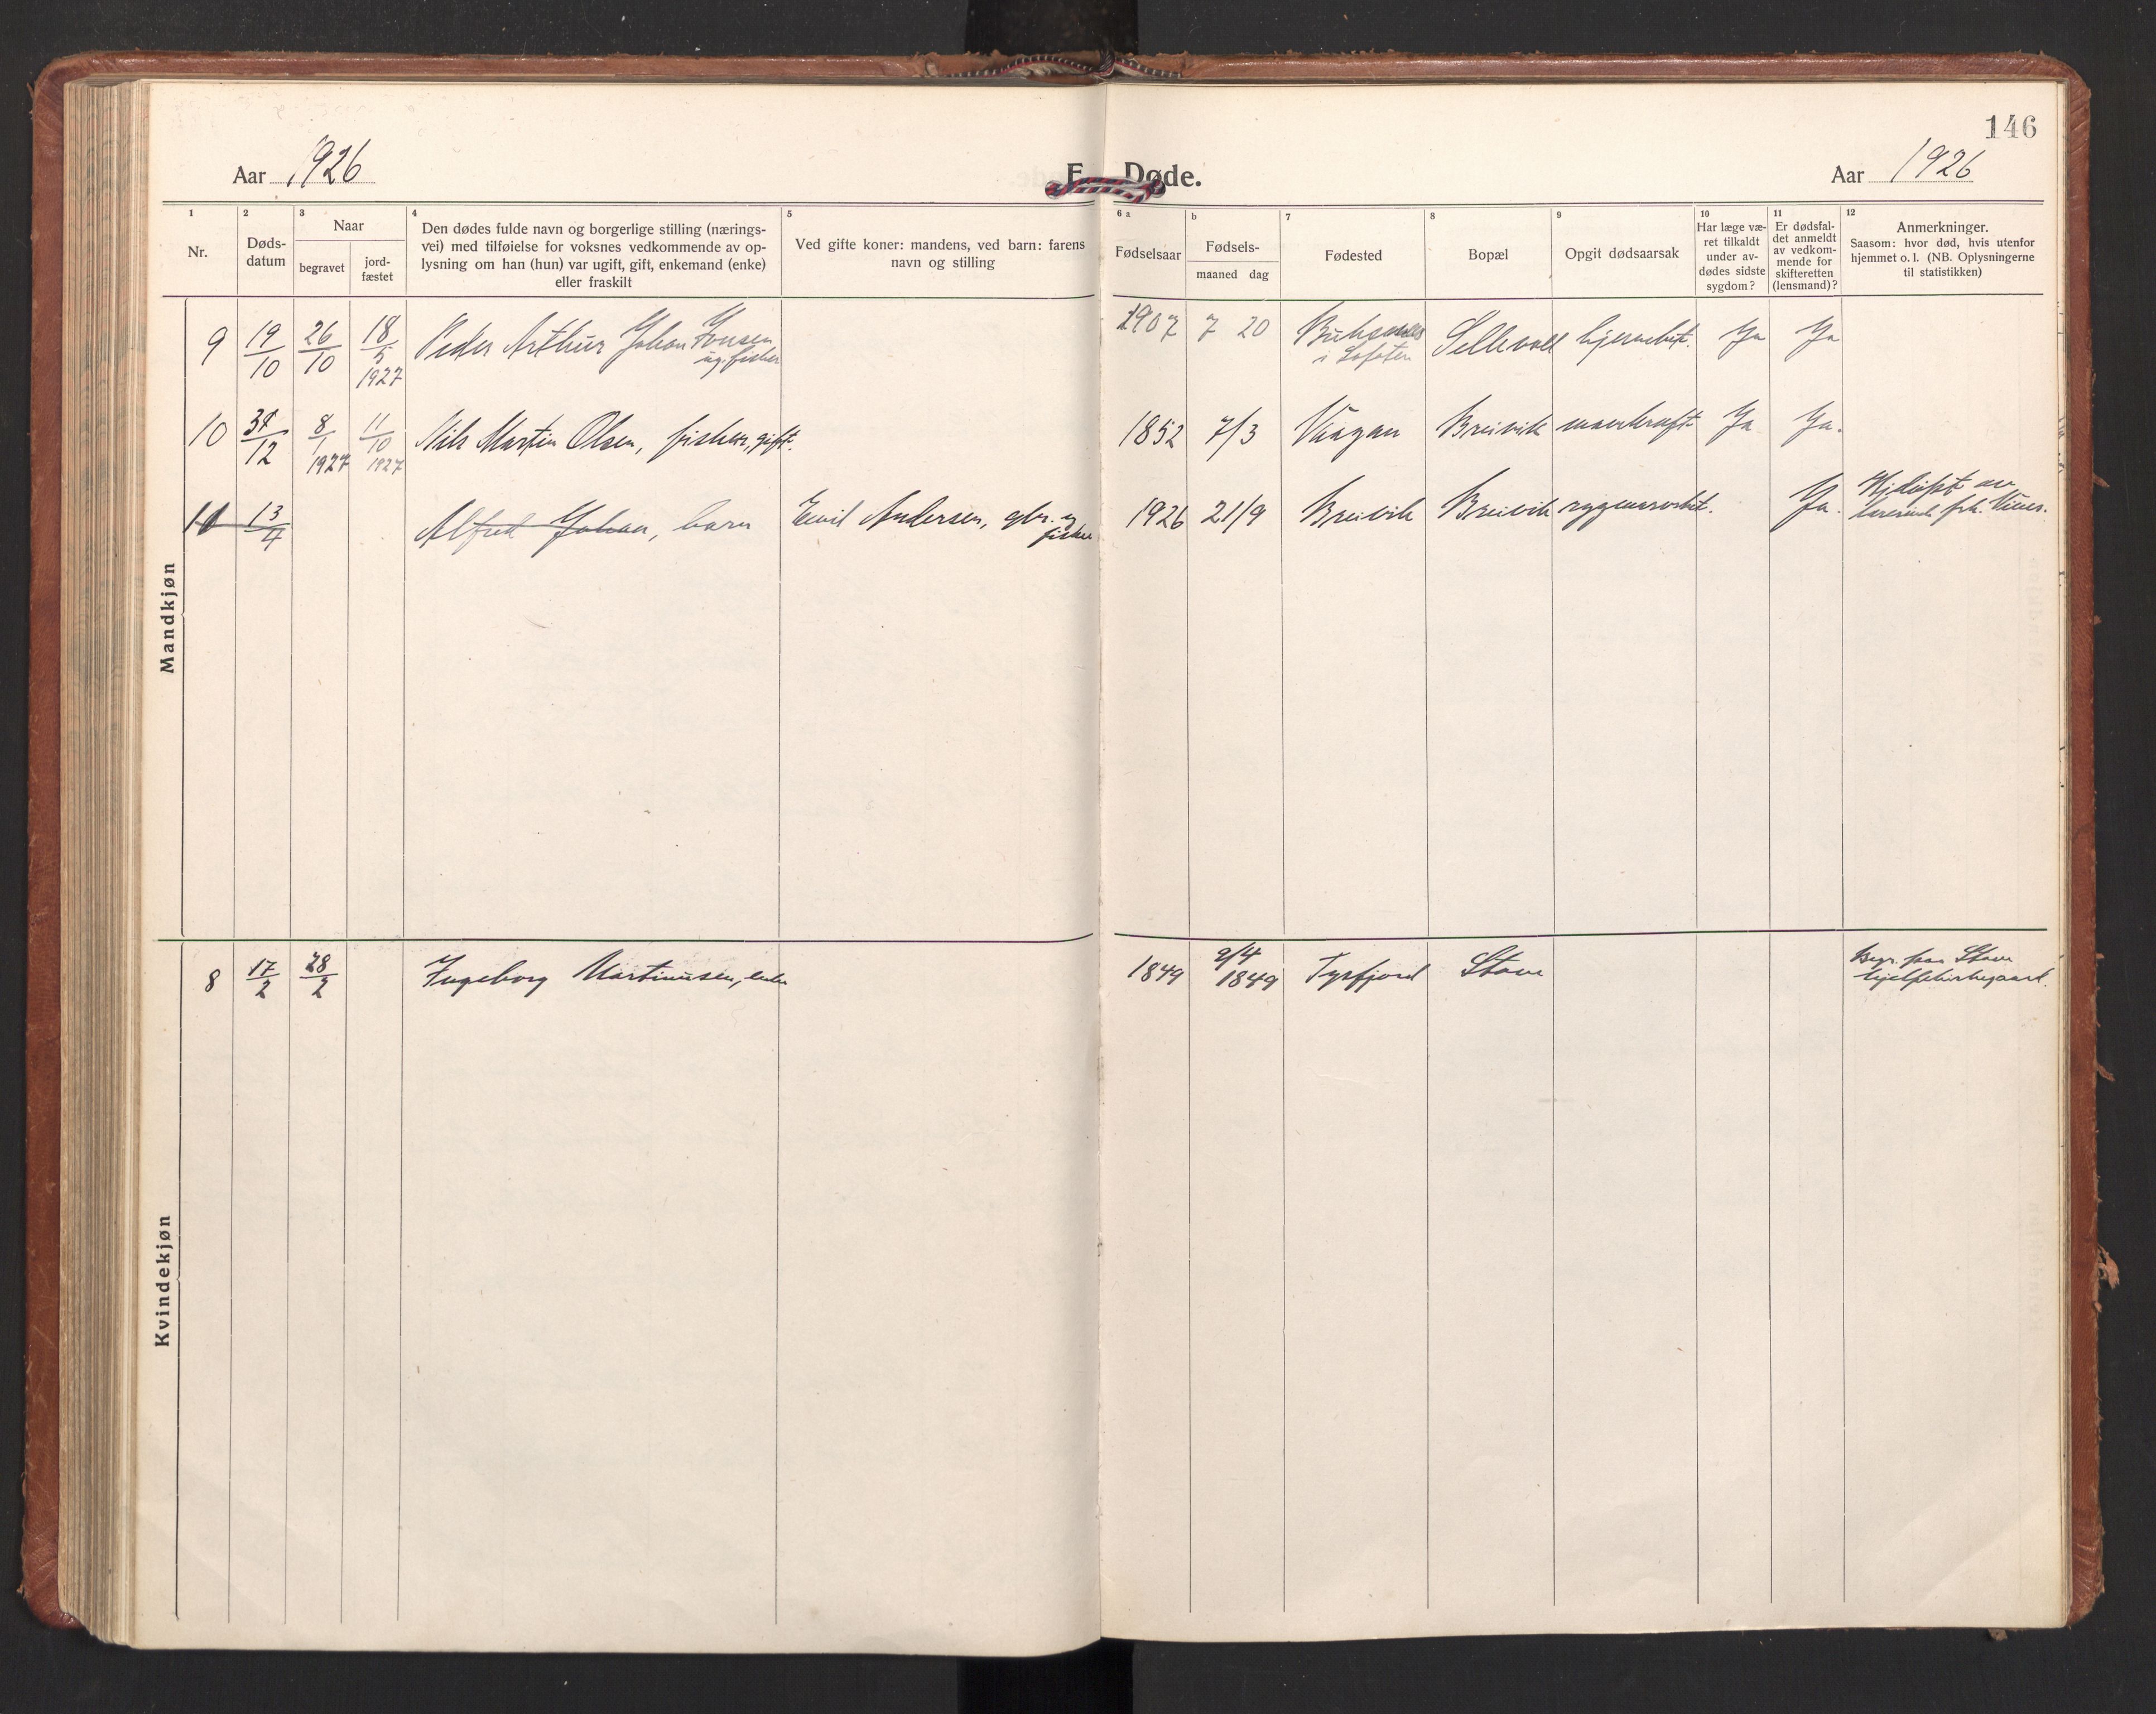 146
Aar 1926
E. Døde.
Aar 1926
1
Nr.
2
Døds-
datum
3
Naar
begravet
jord-
fæstet
4
Den dødes fulde navn og borgerlige stilling (nærings-
vei) med tilføielse for voksnes vedkommende av op-
lysning om han (hun) var ugift, gift, enkemand (enke)
eller fraskilt
5
Ved gifte koner: mandens, ved barn: farens
navn og stilling
6 a
Fødselsaar
b
Fødsels-
maaned dag
7
Fødested
8
Bopæl
9
Opgit dødsaarsak
10
Har læge væ-
ret tilkaldt
under av-
dødes sidste
sygdom?
11
Er dødsfal-
det anmeldt
av vedkom-
mende for
skifteretten
(lensmand)?
12
Anmerkninger.
Saasom: hvor død, hvis utenfor
hjemmet o. l. (NB. Oplysningerne
til statistikken)
Mandkjøn
9 19/10 26/10 18/5 1927 Peder Arthur Johan Jonsen
ug. fisker
1907 7 20
i Lofoten
Sellevoll Ja Ja
10 31/12 8/1 1927 11/10 1927 Nils Martin Olsen, fisker, gift.
1852 7/3 Vaagan Breivik marvkraft Ja Ja.
11 13/4 Alfred Johan, barn Emil Andersen, gbr. og
fisker
1926 21/9 Breivik Breivik Ja. Hjdøpt av
lærerinde frk.
Kvindekjøn
8 17/2 28/2 Ingeborg Martinusen, enke
1849 2/4
1849 Tysfjord Stave
Begr. paa Stave
hjelpekirkegaard.